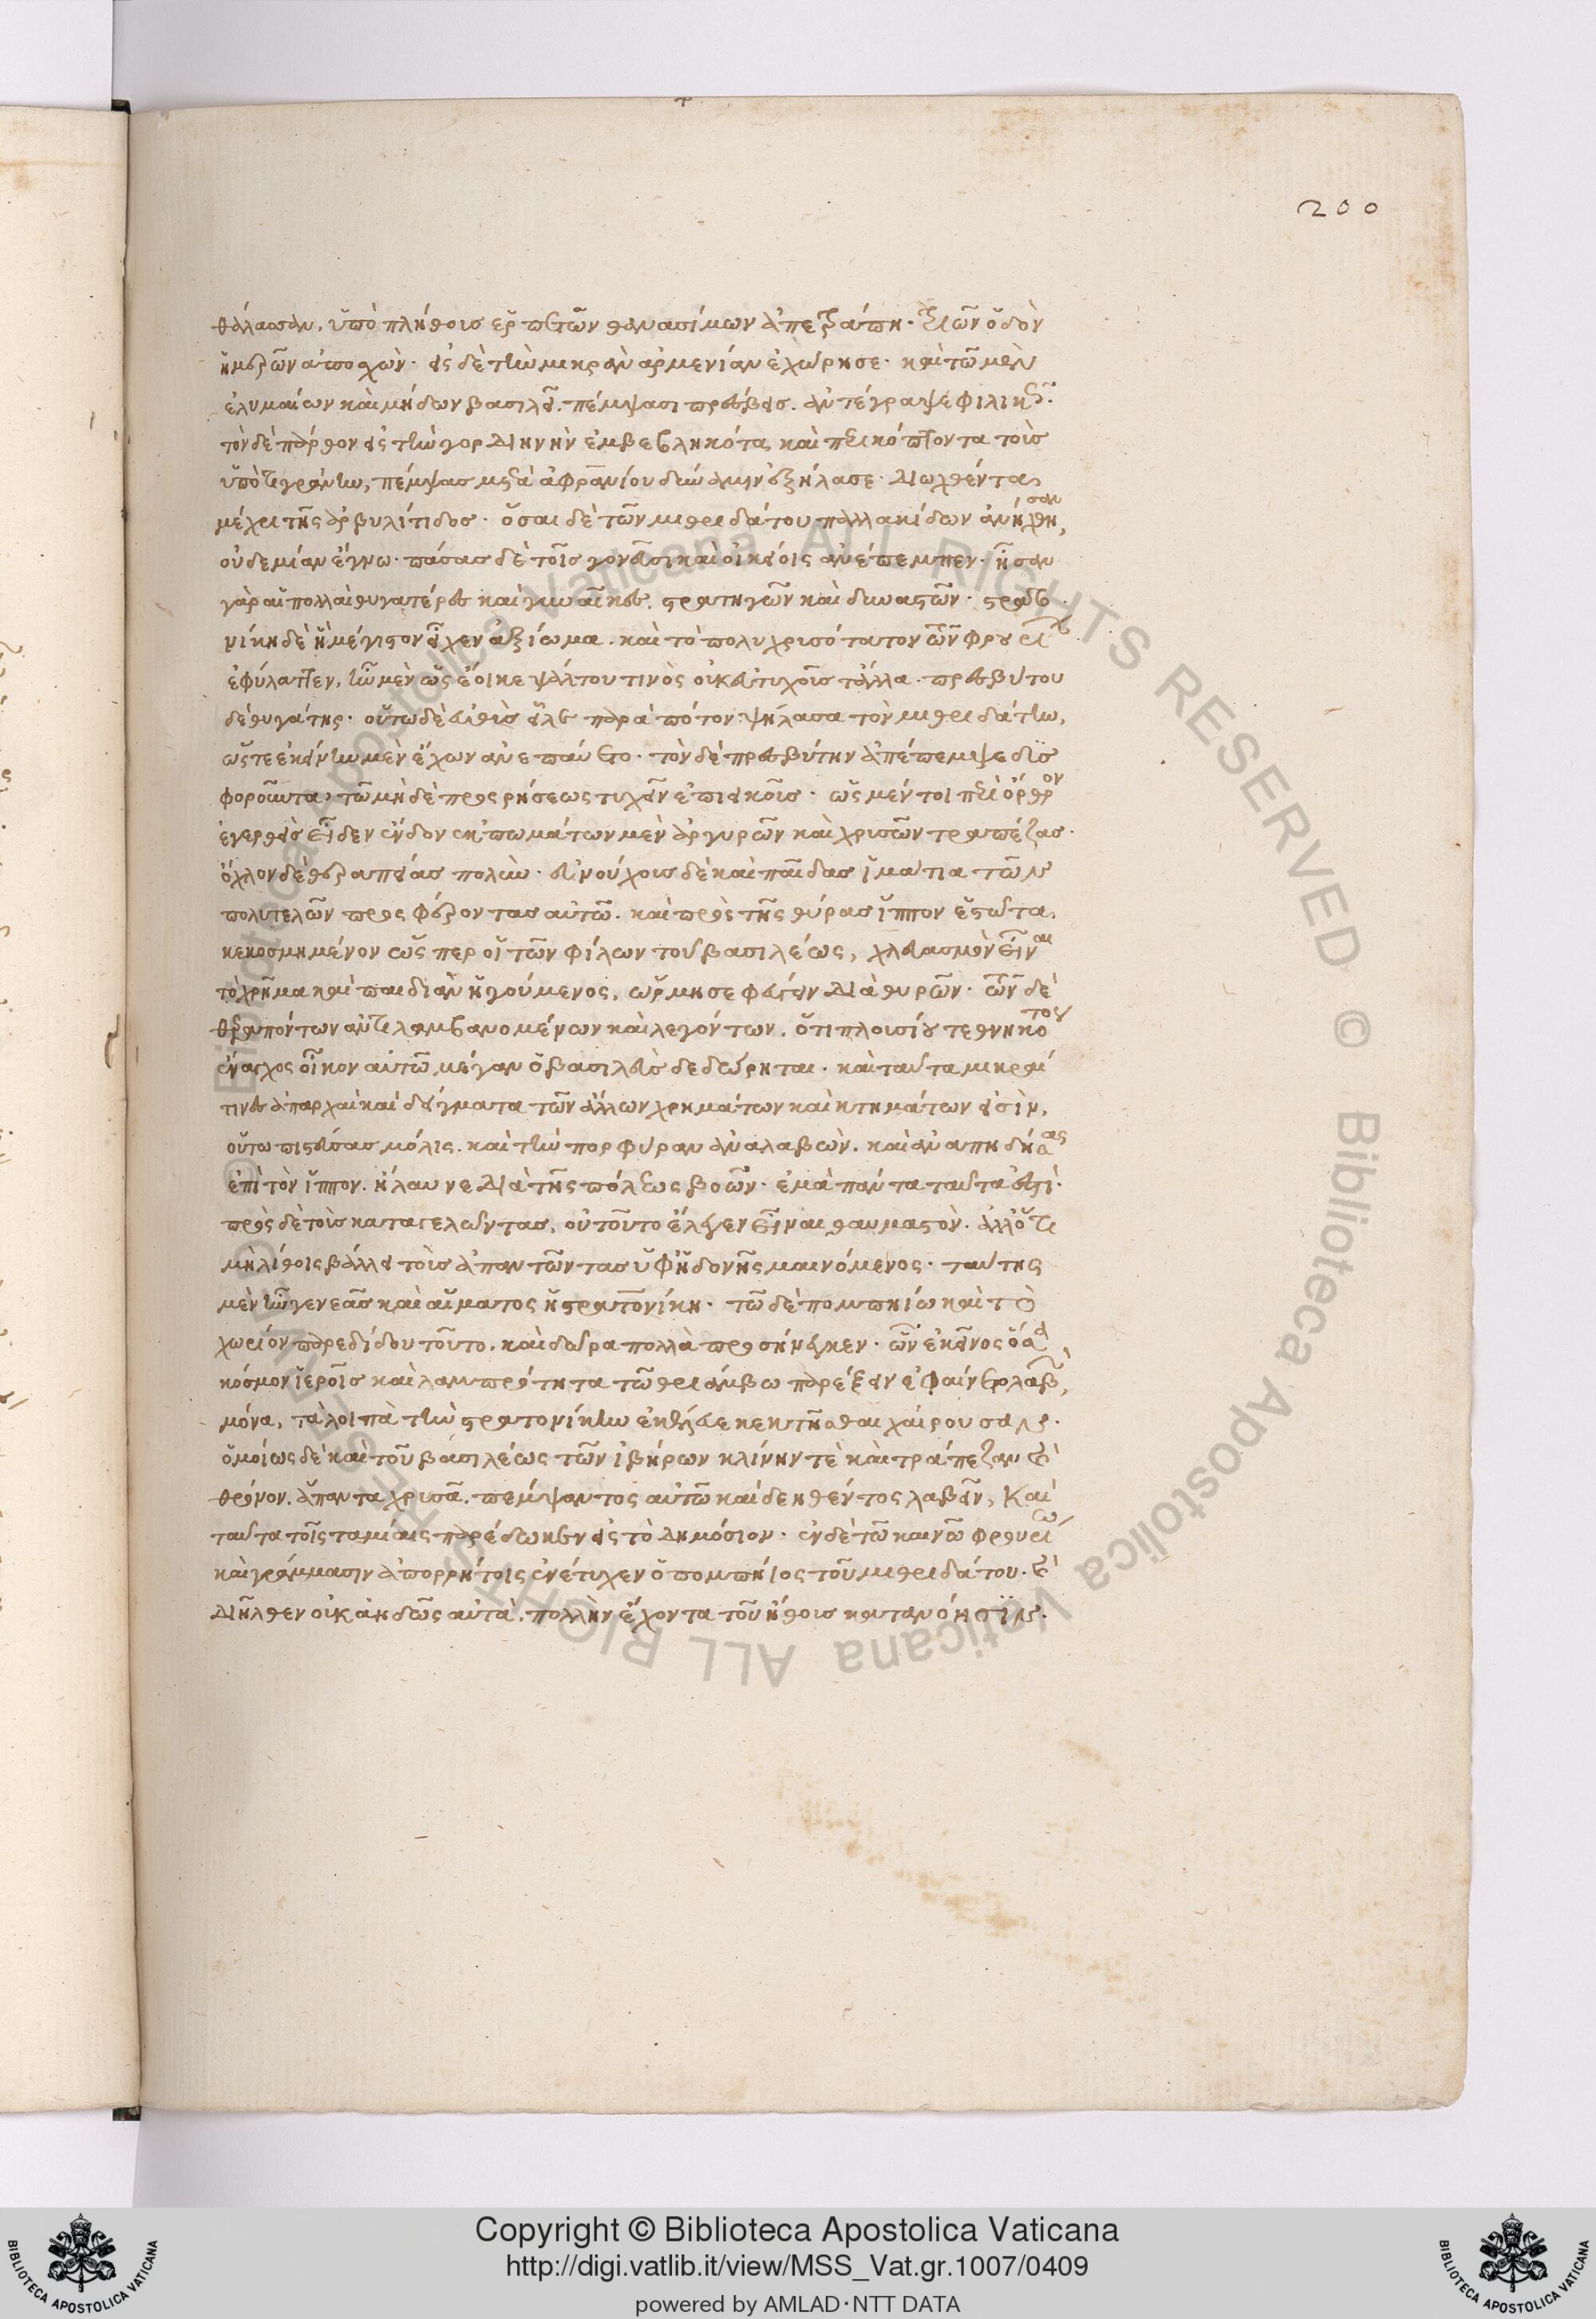 200
θάλασσαν, ὑπὸ πλήθους ἑρπετῶν θανασίμων ἀπετράπη. τριῶν ὁδὸν
ἡμερῶν ἀποσχὼν. εἰς δὲ τὴν μικρὰν ἀρμενίαν ἐχώρησε. καὶ τῶ μὲν
ἐλυμαίων καὶ μήδων βασιλεῖ. πέμψασι πρέσβεις. ἀντέγραψε φιλικῶς.
τὸν δὲ πάρθον εἰς τὴν γορδιηνὴν ἐμβεβληκότα καὶ περικόπτοντα τοὺς
ὑπὸ τιγράνην, πέμψας μετὰ ἀφρανίου δύναμιν ἐξήλασε. διωχθέντα
μέχρι τῆς ἀρβυλίτιδος. ὅσαι δὲ τῶν μιθριδάτου παλλακίδων ἀνήχθησαν,
οὐδεμίαν ἔγνω. πάσας δὲ τοῖς γονεῦσι καὶ οἰκείοις ἀνέπεμπεν. ἦσαν
γὰρ αἱ πολλαὶ θυγατέρες καὶ γυναῖκες. στρατηγῶν καὶ δυναστῶν. στρατο
νίκη δὲ ἣ μέγιστον εἶχεν ἀξίωμα. καὶ τὸ πολυχρυσότατον τῶν φρουρίων
ἐφύλαττεν, ἦν μὲν ὡς ἔοικε ψάλτου τινὸς οὐκ εὐτυχοῦς τἄλλα. πρεσβύτου
δὲ θυγάτηρ. οὕτω δὲ εὐθὺς εἷλε παρὰ πότον ψήλασα τὸν μιθριδάτην,
ὥστε ἐκείνην μὲν ἔχων ἀνεπαύετο. τὸν δὲ πρεσβύτην ἀπέπεμψε δυσ
φοροῦντα, τῶ μὴ δὲ προσρήσεως τυχεῖν ἐπιεικοῦς. ὡς μέντοι περὶ ὄρθρον
ἐγερθεὶς εἶδεν ἔνδον ἐκπωμάτων μὲν ἀργυρῶν καὶ χρυσῶν τραπέζας.
ὄχλον δὲ θεραπείας πολὺν. εὐνούχους δὲ καὶ παῖδας ἱμάτια τῶν
πολυτελῶν προσφέροντας αὐτῶ. καὶ πρὸ τῆς θύρας ἵππον ἑστῶτα,
κεκοσμημένον ὥσπερ οἱ τῶν φίλων τοῦ βασιλέως, χλευασμὸν εἶναι
τὸ χρῆμα καὶ παιδιὰν ἡγούμενος, ὥρμησε φεύγειν διὰ θυρῶν. τῶν δὲ
θεραπόντων ἀντιλαμβανομένων καὶ λεγόντων, ὅτι πλουσίου τεθνηκότος
ἔναγχος οἶκον αὐτῶ μέγαν ὁ βασιλεὺς δεδώρηται. καὶ ταῦτα μικραί
τινες ἀπαρχαὶ καὶ δείγματα τῶν ἄλλων χρημάτων καὶ κτημάτων εἰσὶν,
οὕτω πιστεύσας μόλις. καὶ τὴν πορφύραν ἀναλαβὼν. καὶ ἀναπηδήσας
ἐπὶ τὸν ἵππον. ἤλαυνε διὰ τῆς πόλεως βοῶν. ἐμὰ πάντα ταῦτα ἐστὶ.
πρὸς δὲ τοὺς καταγελῶντας, οὐ τοῦτο ἔλεγεν εἶναι θαυμαστὸν. ἀλλ' ὅτι
μὴ λίθοις βάλλει τοὺς ἀπαντῶντας ὑφ' ἡδονῆς μαινόμενος. ταύτης
μὲν ἦν γενεᾶς καὶ αἵματος ἡ στρατονίκη. τῶ δὲ πομπηίω καὶ τὸ
χωρίον παρεδίδου τοῦτο. καὶ δῶρα πολλὰ προσήνεγκεν. ὧν ἐκεῖνος ὅσα
κόσμον ἱεροῖς καὶ λαμπρότητα τῶ θριάμβω παρέξειν ἐφαίνετο λαβὼν,
μόνα, τὰ λοιπὰ τὴν στρατονίκην ἐκέλευε κεκτῆσθαι χαίρουσαν.
ὁμοίως δὲ καὶ τοῦ βασιλέως τῶν ἰβήρων κλίνην τὲ καὶ τράπεζαν καὶ
θρόνον. ἅπαντα χρυσᾶ. πέμψαντος αὐτῶ καὶ δεηθέντος λαβεῖν, καὶ
ταῦτα τοῖς ταμίαις παρέδωκεν εἰς τὸ δημόσιον. ἐν δὲ τῶ καινῶ φρουρίω
καὶ γράμμασιν ἀπορρήτοις ἐνέτυχεν ὁ πομπήιος τοῦ μιθριδάτου. καὶ
διῆλθεν οὐκ ἀηδῶς αὐτὰ. πολλὴν ἔχοντα τοῦ ἤθους κατανόησιν.
© Biblioteca Apostolica Vaticana ALL RIGHTS RESERVED © Biblioteca Apostolica Vaticana ALL RIGHTS RESERVED
Copyright © Biblioteca Apostolica Vaticana
http://digi.vatlib.it/view/MSS_Vat.gr.1007/0409
powered by AMLAD·NTT DATA
BIBLIOTECA APOSTOLICA VATICANA
BIBLIOTECA APOSTOLICA VATICANA